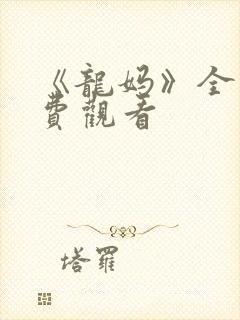 《龍妈》全
費觀看
塔羅